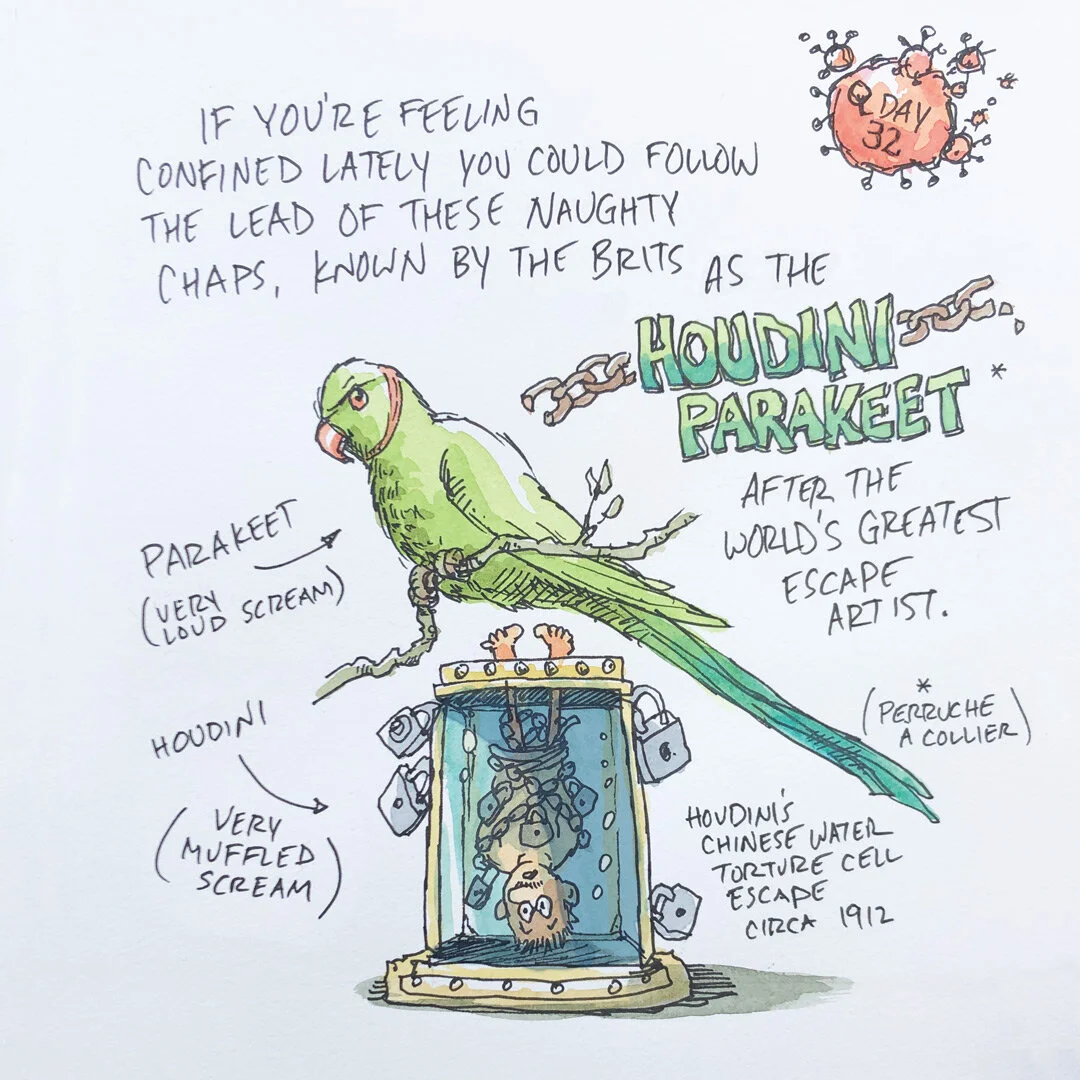 Q DAY
32
IF YOU'RE FEELING
CONFINED LATELY YOU COULD FOLLOW
THE LEAD OF THESE NAUGHTY
CHAPS, KNOWN BY THE BRITS AS THE
HOUDINI
PARAKEET *
AFTER THE
WORLD'S GREATEST
ESCAPE
ARTIST.
PARAKEET
(VERY
LOUD SCREAM)
*
(PERRUCHE
A COLLIER)
HOUDINI
(VERY
MUFFLED
SCREAM)
HOUDINI'S
CHINESE WATER
TORTURE CELL
ESCAPE
CIRCA 1912